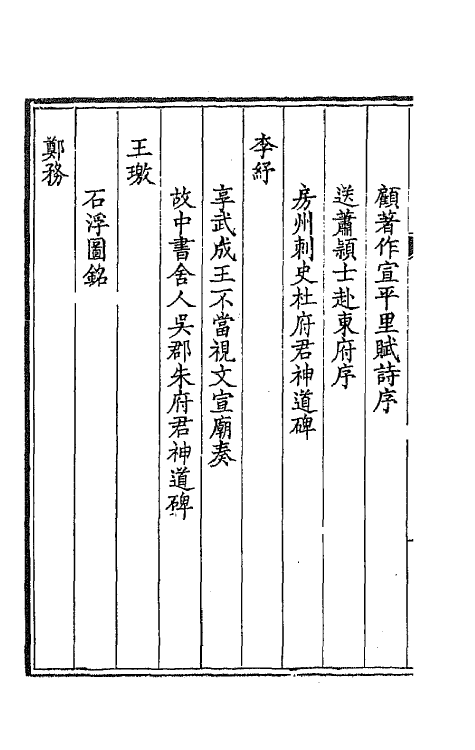 顧著作宣平里賦詩序
送蕭頴士赴東府序
房州刺史杜府君神道碑
李紓
享武成王不當視文宣廟奏
故中書舍人吳郡朱府君神道碑
王璬
石浮圖銘
鄭務